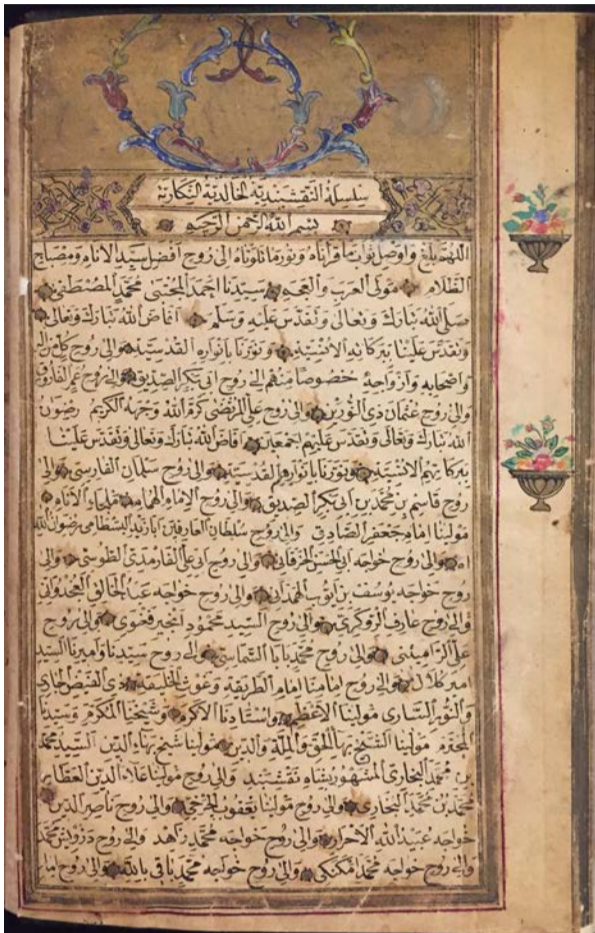 سلسلة النقشبندية الخالدية النكارية
بسم الله الرحمن الرحيم
اللهم بلغ واوصل ثواب ما قرأناه ونور ما تلوناه الى روح افضل سيد الانام ومصباح
الظلام مولى العرب والعجم سيدنا احمد المجتبى محمد المصطفى
صلى الله تبارك وتعالى وتقدس عليه وسلم افاض الله تبارك وتعالى
وتقدس علينا ببركاته الانسية ونورنا بانواره القدسية والى روح كل اله
واصحابه وازواجه خصوصا منهم الى روح ابى بكر الصديق والى روح عمر الفاروق
والى روح عثمان ذى النورين والى روح على المرتضى كرم الله وجهه الكريم رضوان
الله تبارك وتعالى وتقدس عليهم اجمعين افاض الله تبارك وتعالى وتقدس علينا
ببركاتهم الانسية ونورنا بانوارهم القدسية والى روح سلمان الفارسى والى
روح قاسم بن محمد بن ابى بكر الصديق والى روح الامام الهمام ملجاء الانام
مولينا امام جعفر الصادق والى روح سلطان العارفين ابايزيد البسطامى رضوان الله
والى روح خواجه ابى الحسن الخرقانى والى روح ابى على الفارمدى الطوسى والى
روح خواجه يوسف بن ايوب الهمدانى والى روح خواجه عبد الخالق الغجدوانى
والى روح عارف الريوكرى والى روح السيد محمود انجير فغنوى والى روح
على الراميتنى والى روح محمد بابا السماسى والى روح سيدنا واميرنا السيد
امير كلال والى روح امامنا امام الطريقه وغوث الخليقه ذى الفيض الجارى
والنور السارى مولينا الاعظم واستادنا الاكرم وشيخنا المكرم وسيدنا
المحترم مولينا الشيخ بهاء الحق والملة والدين مولينا شيخ بهاء الدين السيد محمد
بن محمد البخارى المشهور بشاه نقشبند والى روح مولينا علاء الدين العطار
محمد بن محمد البخارى والى روح مولينا يعقوب الجرخى والى روح ناصر الدين
خواجه عبيد الله الاحرار والى روح خواجه محمد زاهد والى روح درويش محمد
والى روح خواجه محمد امكنكى والى روح خواجه محمد باقى بالله والى روح امام